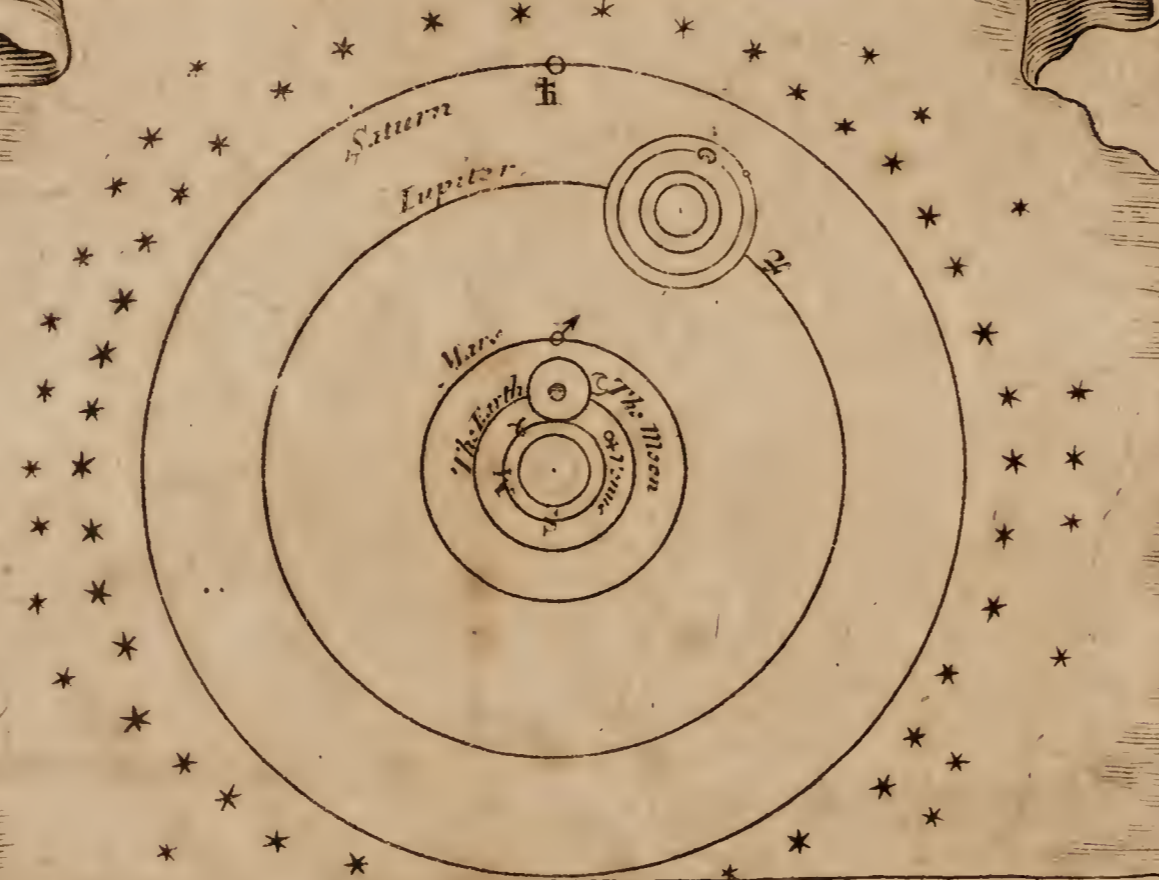 ♄
Saturn
Iupiter
♃
Mars
♂
The Earth
☾ The Moon
♀ Venus